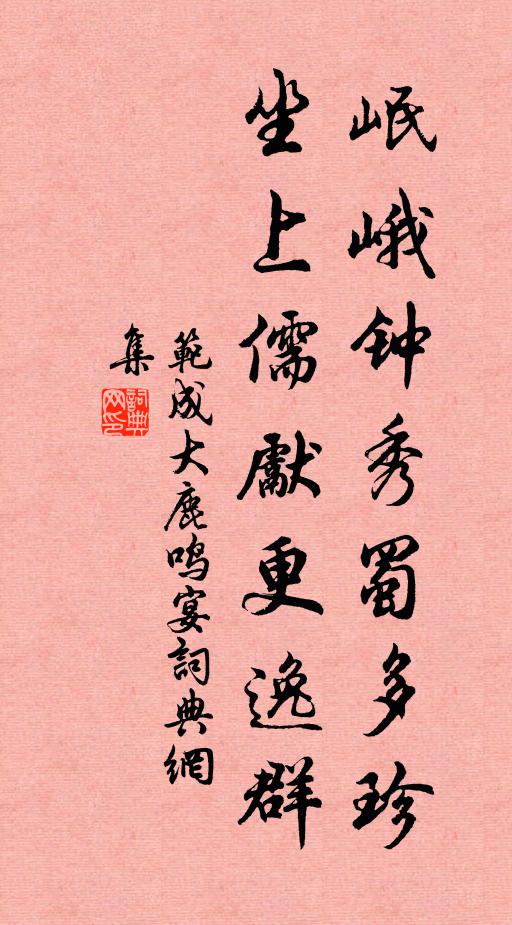 岷峨钟秀蜀多珍
坐上儒獻更逸群
範成大鹿鸣宴詞典網
集
詞典網印